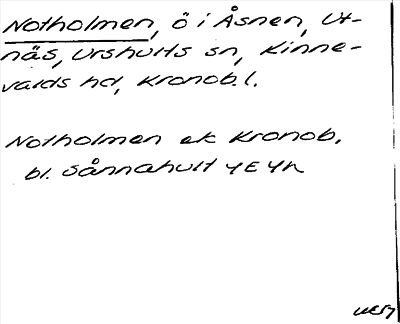 Notholmen, ö i Åsnen, Ut-
näs, Urshults sn, Kinne-
valds hd, Kronob.l.
Notholmen ek Kronob.
bl. Sånnahult 4E4h